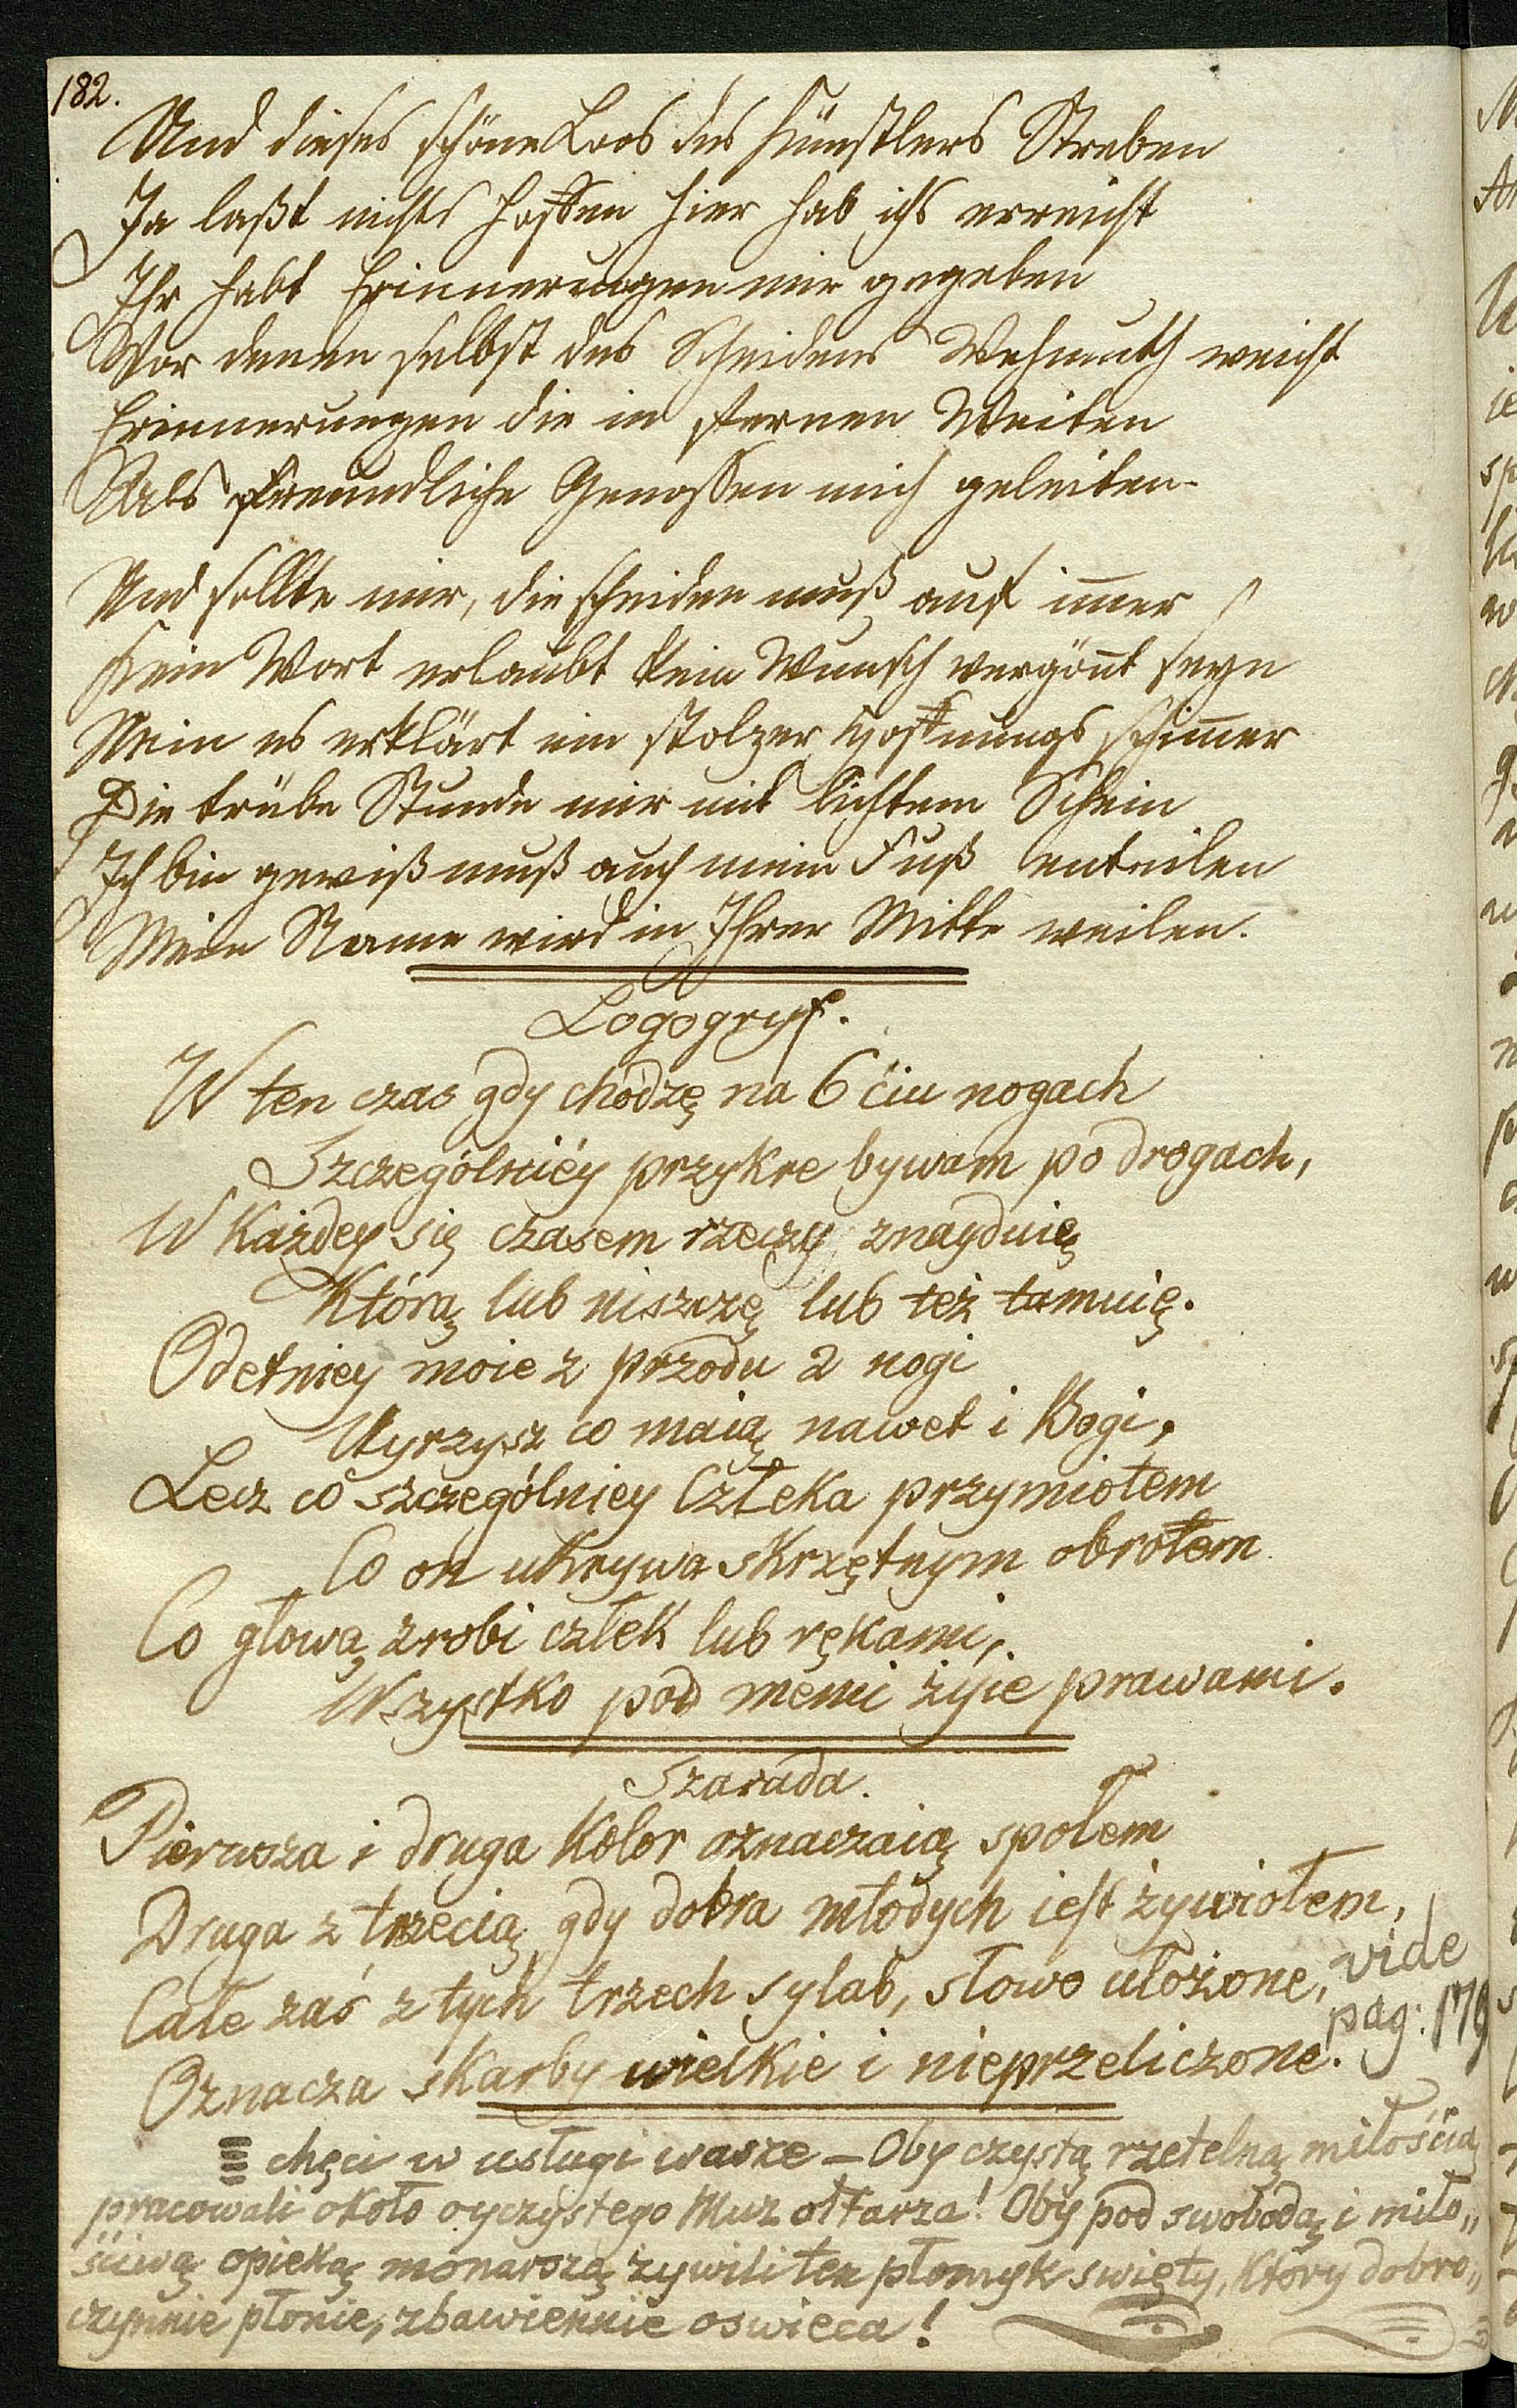 182.
Und dieses schöne Loos des Künstlers Streben
Ja laßt michs hoffen hier hab ichs erreicht
Ihr habt Erinnerungen mir gegeben
Vor denen selbst des Scheidens Wehmuth weicht
Erinnerungen die in fernen Weiten
Als freundliche Genossen mich geleiten.
Und sollte mir, die scheiden muß auf im̅er
Kein Wort erlaubt kein Wunsch vergön̅t seyn
Nein es erklärt ein stolzer Hoffnungs schim̅er
Die trübe Stunde mir mit lichtem Schein
Ich bin gewiß muß auch mein Fuß enteilen
Mein Name wird in Ihrer Mitte weilen.
Logogryf.
W ten czas gdy chodzę na 6ciu nogach
Szczególniéy przykre bywam po drogach,
W Każdey się czasem rzeczy znayduię
Którą lub niszczę lub też tamuię.
Odetniey moie z przodu 2 nogi
Uyrzysz co maią nawet i Bogi,
Lecz co szczególniey Człeka przymiotem
Co on ukrywa skrzętnym obrotem
Co głową zrobi człek lub rękami,
Wszystko pod memi żyie prawami.
Szarada.
Pierwsza i druga Kolor oznaczaią społem
Druga z trzecią gdy dobra młodych iest żywiołem,
Całe zaś z tych trzech sylab, słowo ułożone,
Oznacza skarby wielkie i nieprzeliczone.
vide
pag: 179
chęci w usługi wasze – Oby czystą rzetelną miłością
pracowali około oyczystego Muz ołtarza! Oby pod swobodą i miło„
ściwą opieką monarszą żywili ten płomyk swięty, Który dobro„
czynnie płonie, zbawiennie oswieca!